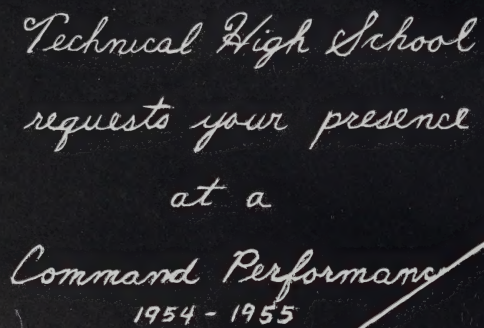 Technical High School
requests your presence
at a
Command Performance
1954 - 1955